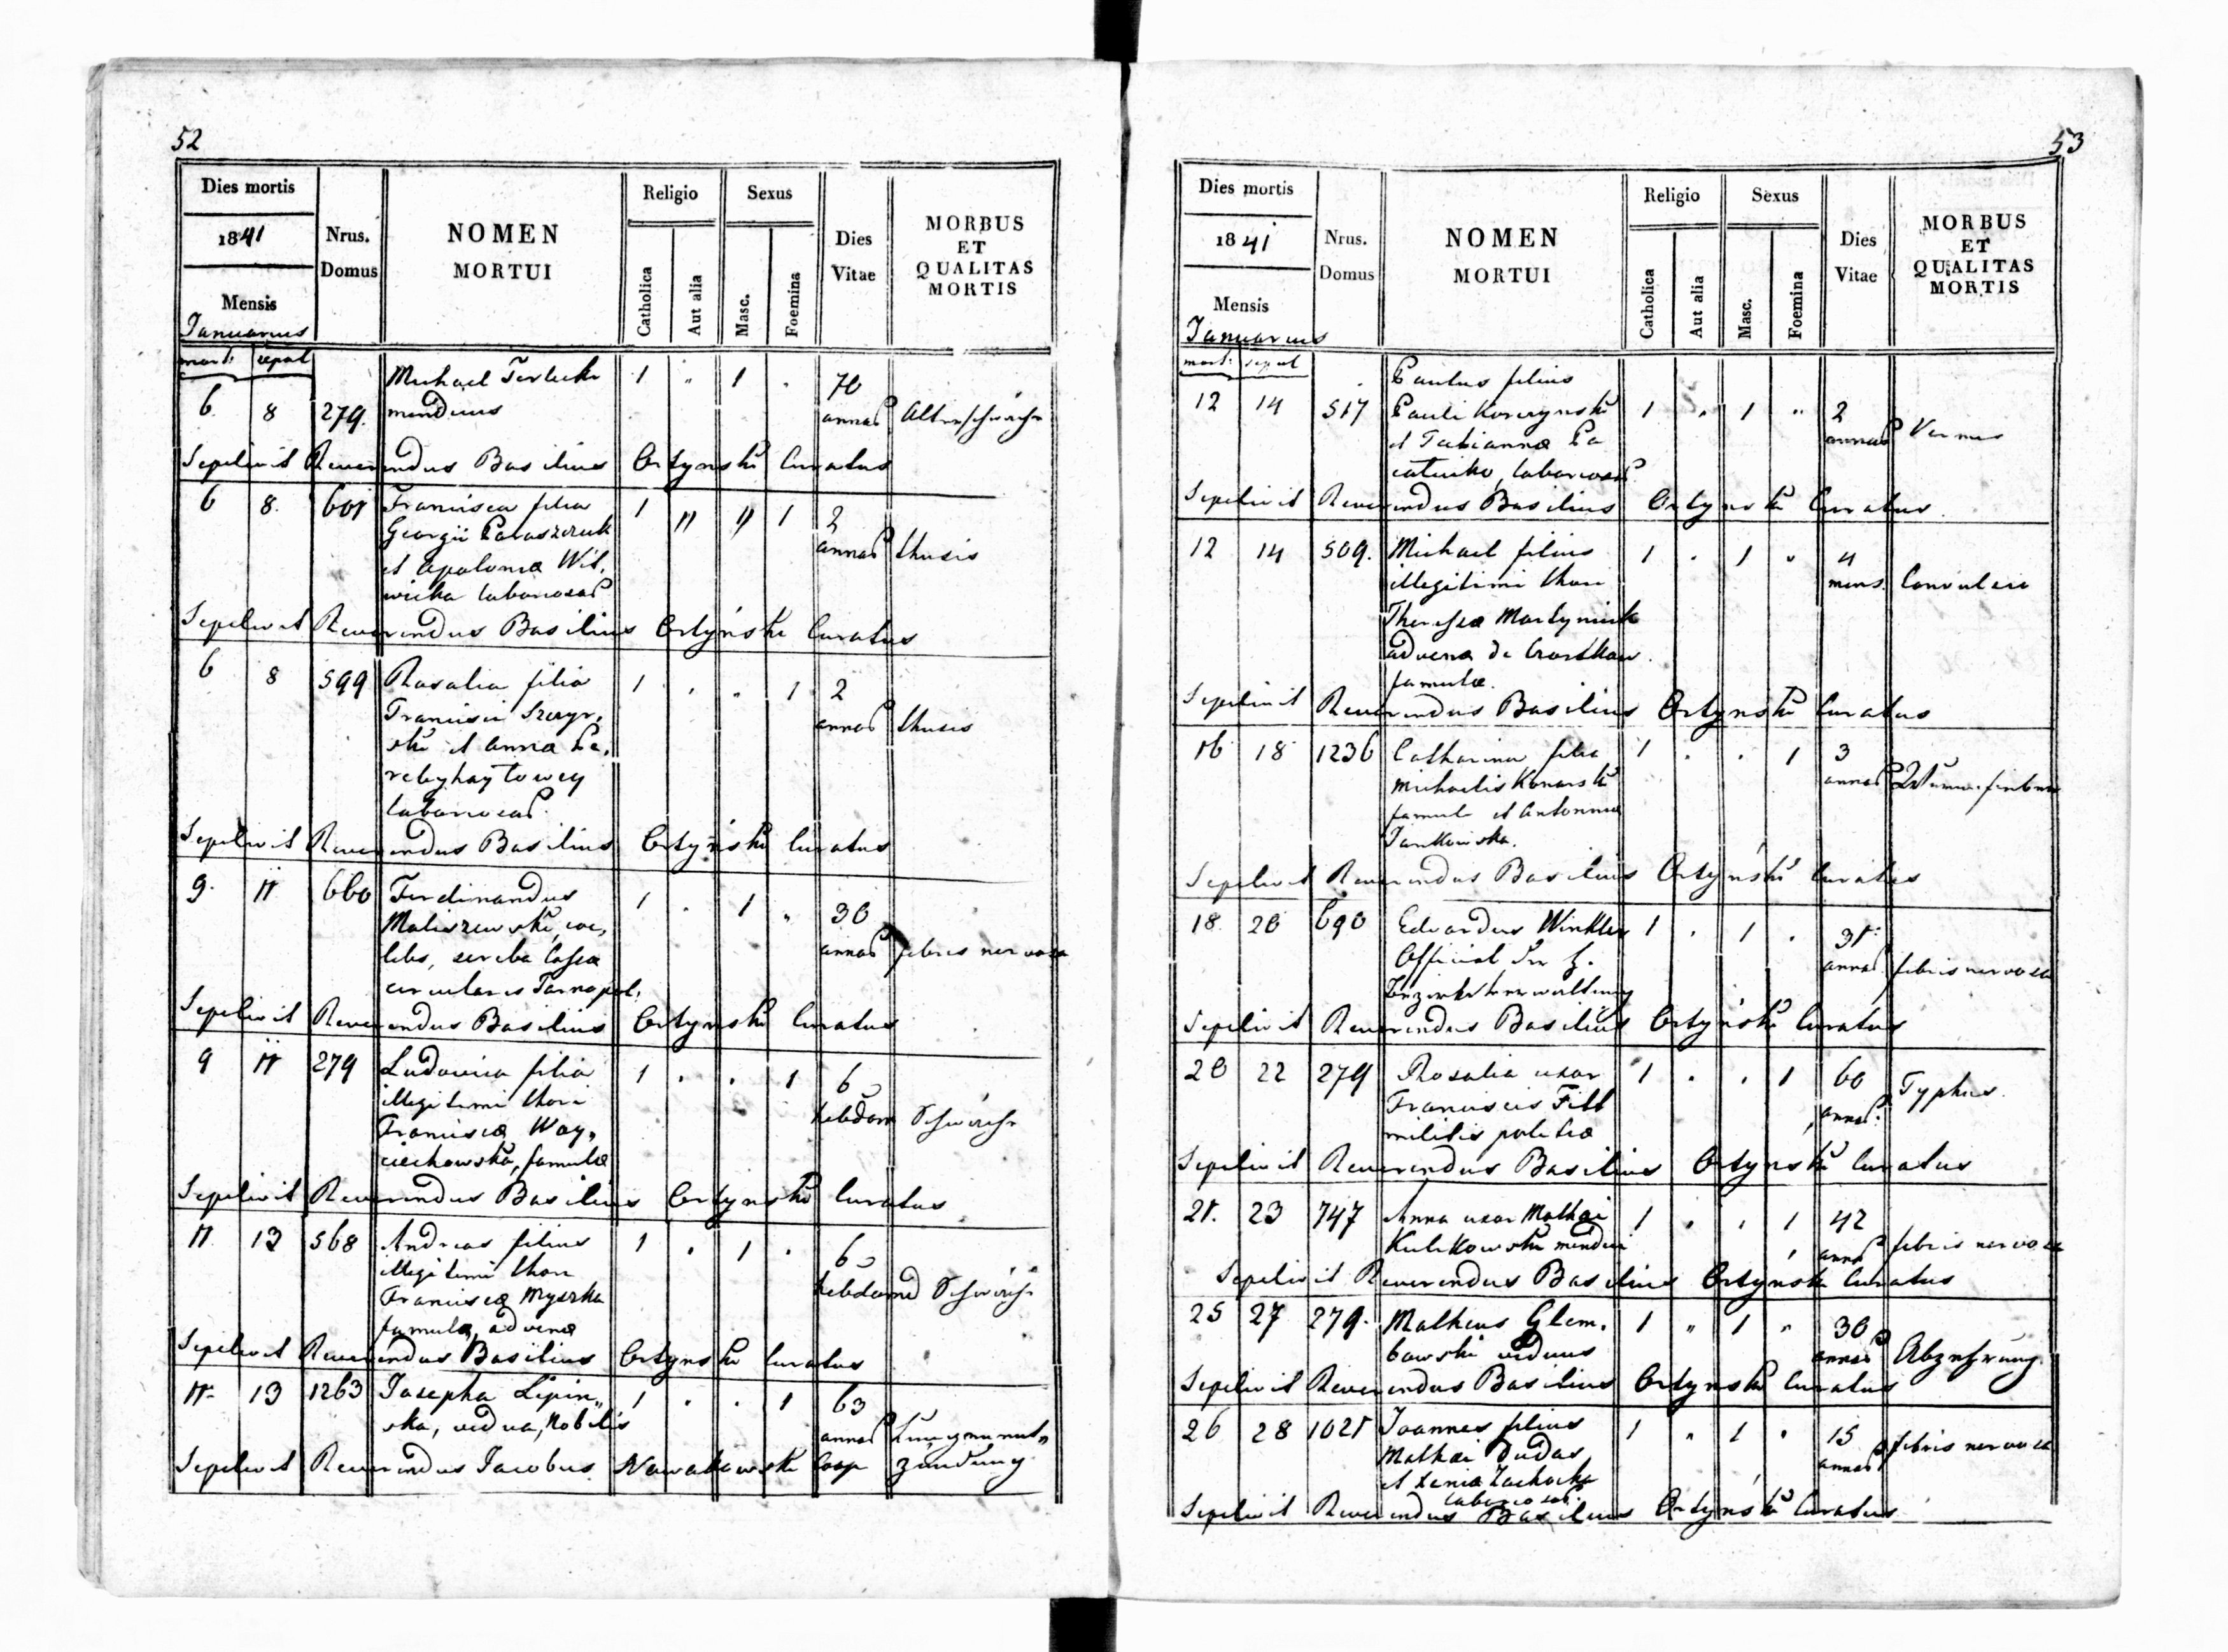 52
Dies mortis
1841
Mensis
Januarius
mort. sepul
Nrus.
Domus
NOMEN
MORTUI
Religio
Catholica
Aut alia
Sexus
Masc.
Foemina
Dies
Vitae
MORBUS
ET
QUALITAS
MORTIS
Michael Terlecki 1 " 1 " 70
6. 8 279. mendicus annor Altersschwäche
Sepelivit Reverendus Basilius Ortynski Curatus
6 8. 601 Francisca filia 1 " " 1 2
Georgii Palaszczuk annor thusis
et Apolonia Wit,
wicka laborios
Sepelivit Reverendus Basilius Ortynski Curatus
6 8 599 Rosalia filia 1 " " 1 2
Francisci annor thusis
ski et Anna Pe,
laborios
Sepelivit Reverendus Basilius Ortynski Curatus
9. 11 660 Ferdinandus 1 " 1 " 30
Maliszewski, coe,
lebs, scriba Cassae annor febris nervosa
circularis Tarnopol.
Sepelivit Reverendus Basilius Ortynski Curatus
9 11 279 Ludovica filia 1 " " 1 6
illegitimi thori
Franciscæ Woy, hebdom Schwäche
ciechowska, famulæ
Sepelivit Reverendus Basilius Ortynski Curatus
11 13 568 Andreas filius 1 " 1 " 6
illegitimi thori
Franciscæ Myszka hebdomad Schwäche
famulæ, advenæ
Sepelivit Reverendus Basilius Ortynski Curatus
11 13 1263 Josepha Lipin,, 1 " " 1 63
ska, vidua, Nobilis annor Lungenent,,
Sepelivit Reverendus Jacobus Nowakowski Coop zündung
53
Dies mortis
1841
Mensis
Januarius
mort. sepul
Nrus.
Domus
NOMEN
MORTUI
Religio
Catholica
Aut alia
Sexus
Masc.
Foemina
Dies
Vitae
MORBUS
ET
QUALITAS
MORTIS
Paulus filius
12 14 517 Pauli Korczynski 1 " 1 " 2
et Fabianna annor Vermes
laborios
Sepelivit Reverendus Basilius Ortynski Curatus.
12 14 509. Michael filius 1 " 1 " 4
illegitimi thori mens. Convulsio
Theresiæ Martyniuk
advena de
famulæ.
Sepelivit Reverendus Basilius Ortynski Curatus
16 18 1236 Catharina filia 1 " " 1 3
Michaelis Konarski annor
famuli et Antonina
Jankowska.
Sepelivit Reverendus Basilius Ortynski Curatus
18. 20 690 Eduardus Winkler 1 " 1 " 31
Official annor febris nervosa
Bezirksverwaltung
Sepelivit Reverendus Basilius Ortynski Curatus
20 22 279 Rosalia uxor 1 " " 1 60 Typhus.
Francisci annor.
militis politiæ
Sepelivit Reverendus Basilius Ortynski Curatus
21. 23 747 Anna uxor Mathæi 1 " " 1 42
Kulikowski mendici annor febris nervosa
Sepelivit Reverendus Basilius Ortynski Curatus
25 27 279. Matheus Glem. 1 " 1 " 30
bowski viduus annor Abzehrung.
Sepelivit Reverendus Basilius Ortynski Curatus
26 28 1021 Joannes filius 1 " 1 " 15
Mathæi Dudas annor febris nervosa
et Xenia
laborios.
Sepelivit Reverendus Basilius Ortynski Curatus